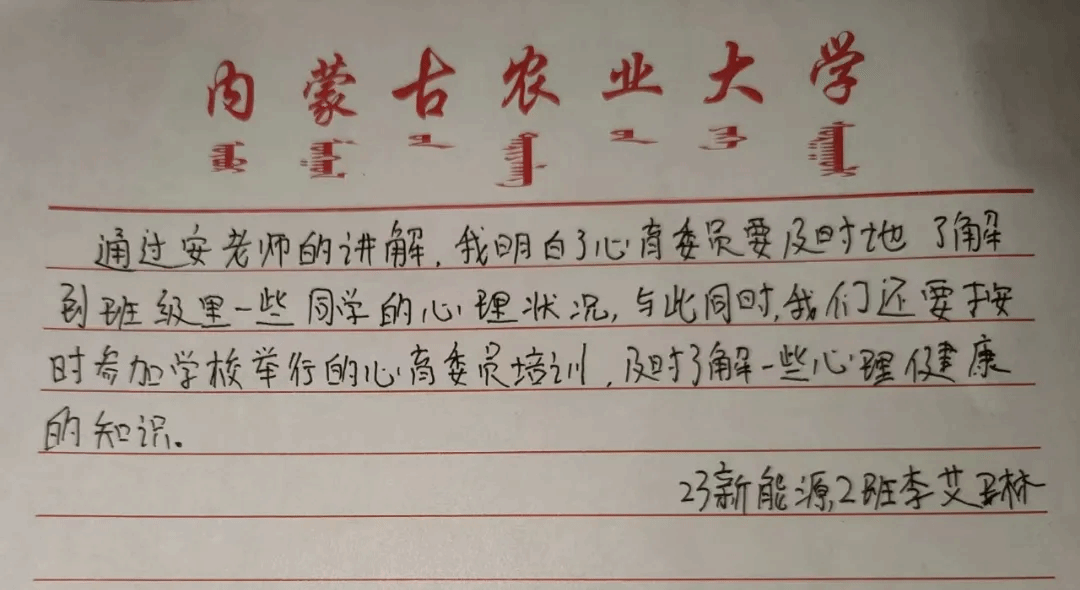 内蒙古农业大学
通过安老师的讲解,我明白了心育委员要及时地了解
到班级里一些同学的心理状况,与此同时,我们还要按
时参加学校举行的心育委员培训,及时了解一些心理健康
的知识。
23新能源2班李艾林